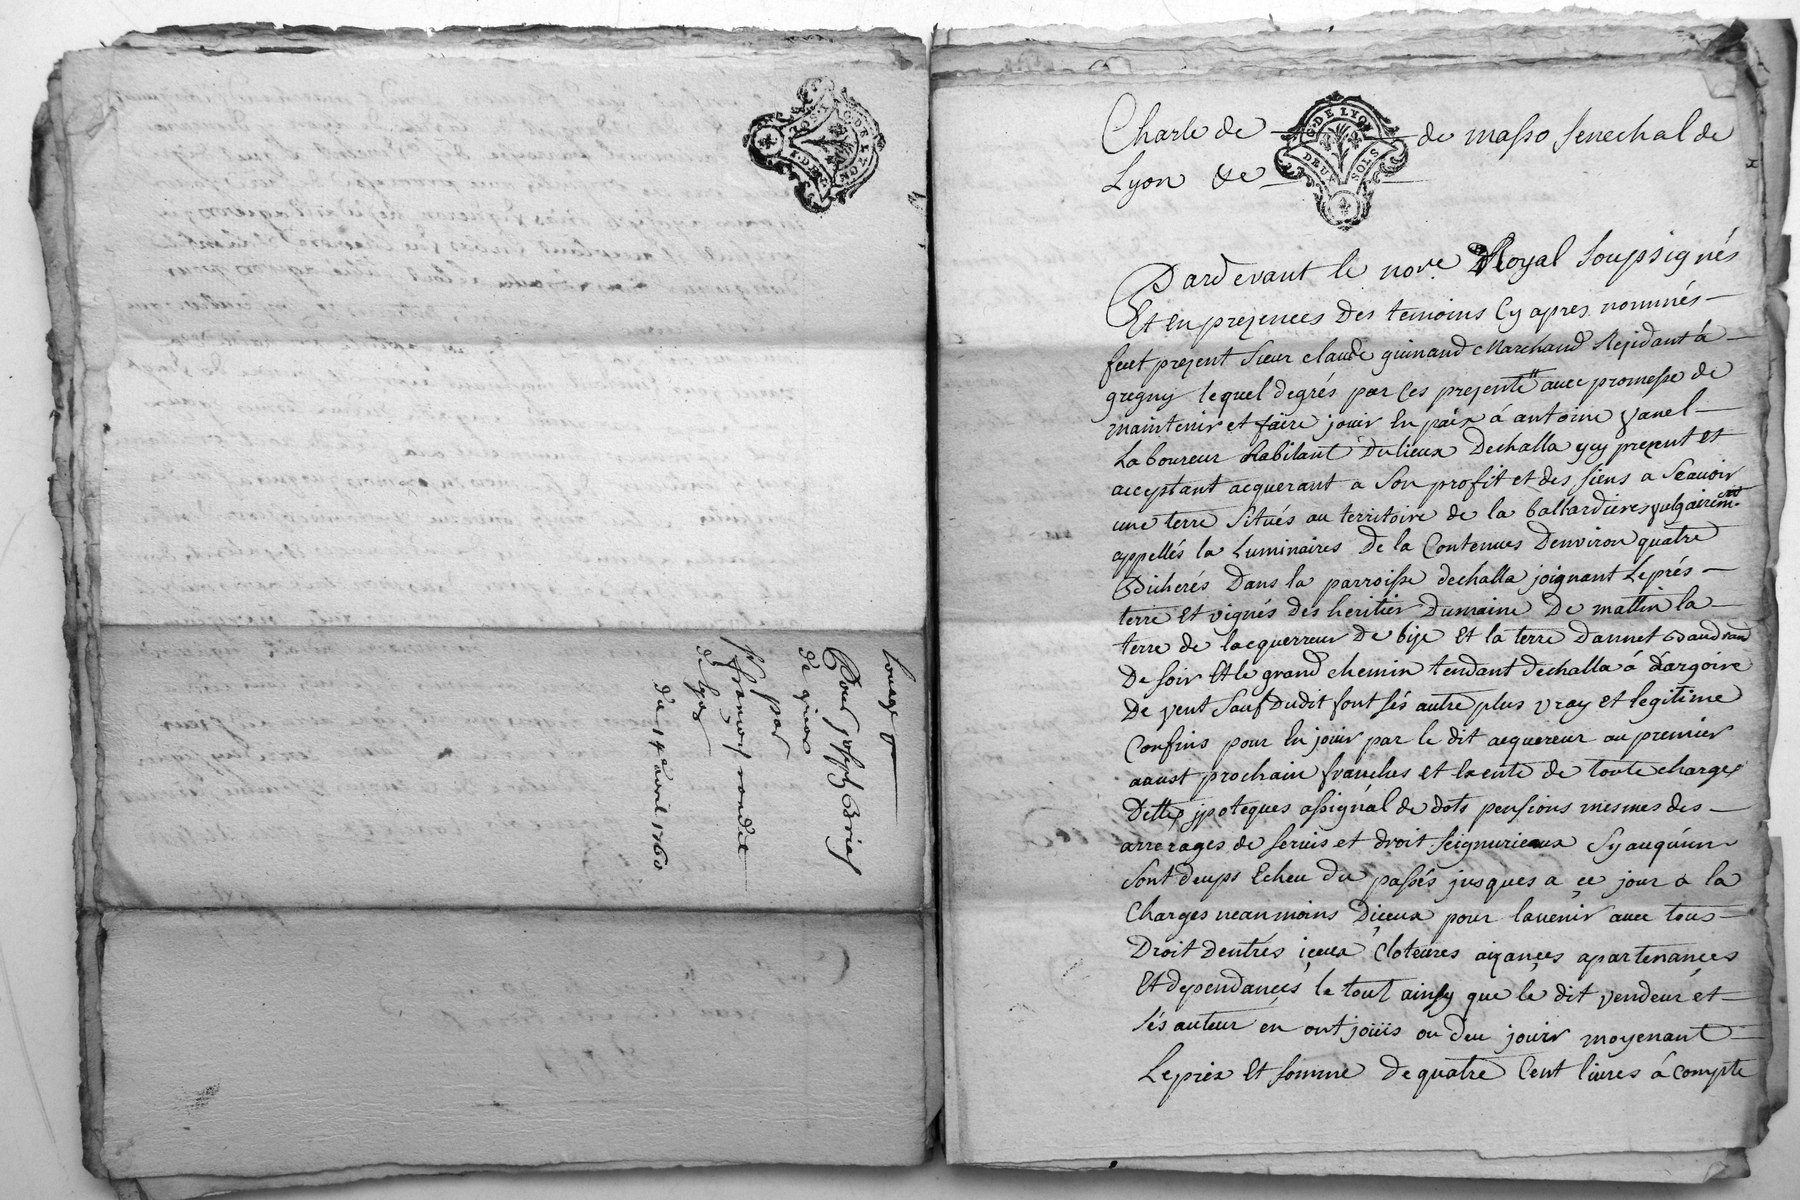 G. DE LYON
DEUX SOLS
Louage
Pour joseph Brias
de
par
françois rondet
du 14e avril 1760
G. DE LYON
DEUX SOLS
Charle de de masso senechal de
Lyon &c
Pardevant le nore. Royal soupsignés
Et en prezences des temoins cy apres nommés
feut prezent sieur claude guinand Marchand Rezidant á
gregny lequel degrés par ces prezentes avec promesse de
maintenir et faire jouir en paix á antoine vanel
Laboureur habitant du lieux dechalla ycy prezent et
acceptant acquerant a son profit et des siens a scavoir
une terre situés au territoire de la ballardieres vulgairemt
appellés la Luminaires de la Contenues denviron quatre
Bicherés dans la parroisse dechalla joignant Leprés
terre et vignés des heritier dumaine De mattin la
terre de lacquerreur De bize Et la terre dannet Gaudrand
De soir Et le grand chemin tendant dechalla á dargoire
De vent sauf dudit font sés autre plus vray et legitime
Confins pour En jouir par le dit acquereur au premier
aoust prochain franches et exente de toute charges
Dettes ypoteques assignal de dots pensions mesmes des
arrerages de servis et droit seigneurieaux sy aucuun
sont deups Echeu du passés jusques a ce jour a la
Charges neanmoins Diceux pour lavenir avec tous
Droit dentrés iceux Cloteures aizances apartenances
Et dependances le tout ainsy que le dit vendeur et
sés auteur en ont joüis ou deu jouir moyenant
Leprix Et somme de quatre Cent livres á compte